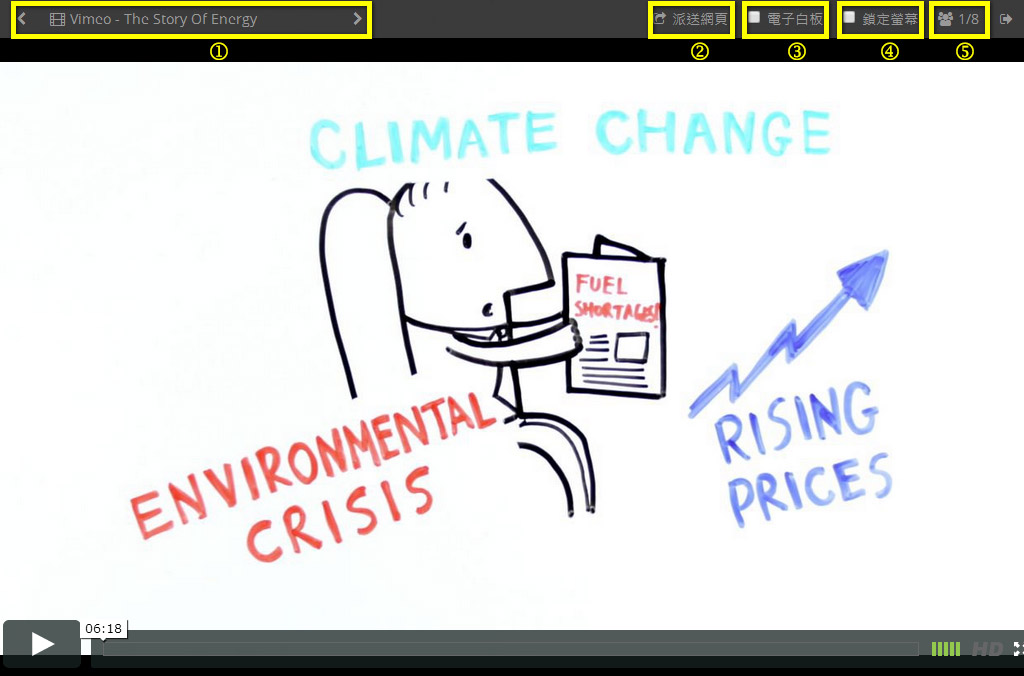 Vimeo - The Story Of Energy 派送網頁 電子白板 鎖定螢幕 1/8
① ② ③ ④ ⑤
CLIMATE CHANGE
FUEL
SHORTAGES!
ENVIRONMENTAL
CRISIS
RISING
PRICES
06:18
HD